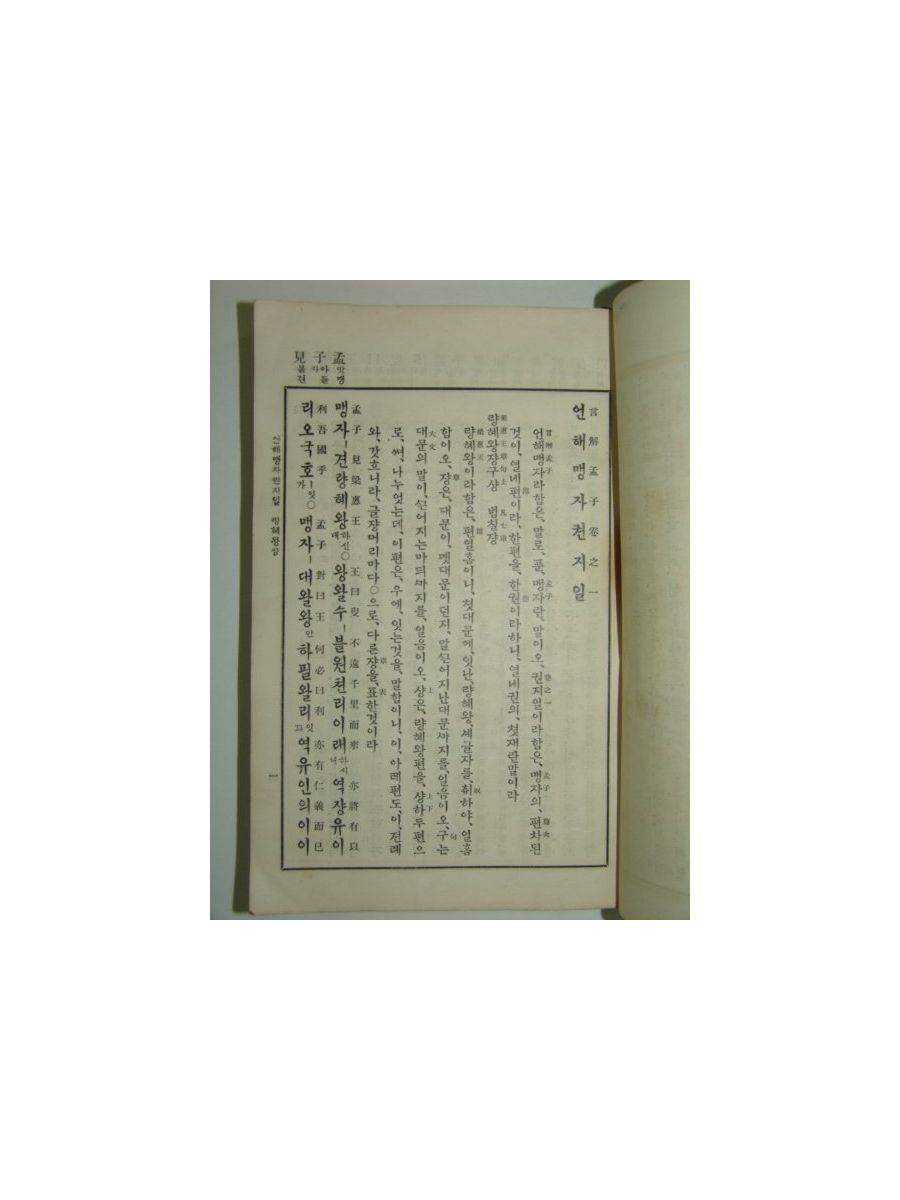 언해맹자권지일
言解孟子卷之一
언해맹자라함은, 말로, 푼, 맹자란, 말이오, 권지일이라함은, 맹자의, 편차된
것이, 열네편이라, 한편을, 한권이라하니, 열네권의, 첫재란말이라
량혜왕쟝구샹 범칠쟝
梁惠王章句上 凡七章
량혜왕이라함은, 편일홈이니, 첫대문에, 잇난, 량혜왕, 세글자를, 취하야, 일홈
함이오, 쟝은, 대문이, 몃대문이던지, 말ᄭᅳᆫ어지난대문ᄭᅡ지를, 일음이오, 구는
대문의말이, ᄭᅳᆫ어지는마듸ᄭᅡ지를, 일음이오, 샹은, 량혜왕편을, 샹하두편으
로, 써, 나누엇는데, 이편은, 우에, 잇는것을, 말함이니, 이, 아레편도, 이, 전례
와, 갓흐니라, 글쟝머리마다○으로, 다른쟝을, 표한것이라
맹자ㅣ견량혜왕하신대○왕왈수ㅣ블원쳔리이래하시니역쟝유이
孟子見梁惠王 王曰叟不遠千里而來亦將有以
리오국호ㅣ잇가○맹자ㅣ대왈왕안하필왈리잇고역유인의이이
利吾國乎 孟子對曰王何必曰利亦有仁義而已
孟 맛맹
子 아들자
見 볼견
언해맹자권지일 량혜왕샹
一